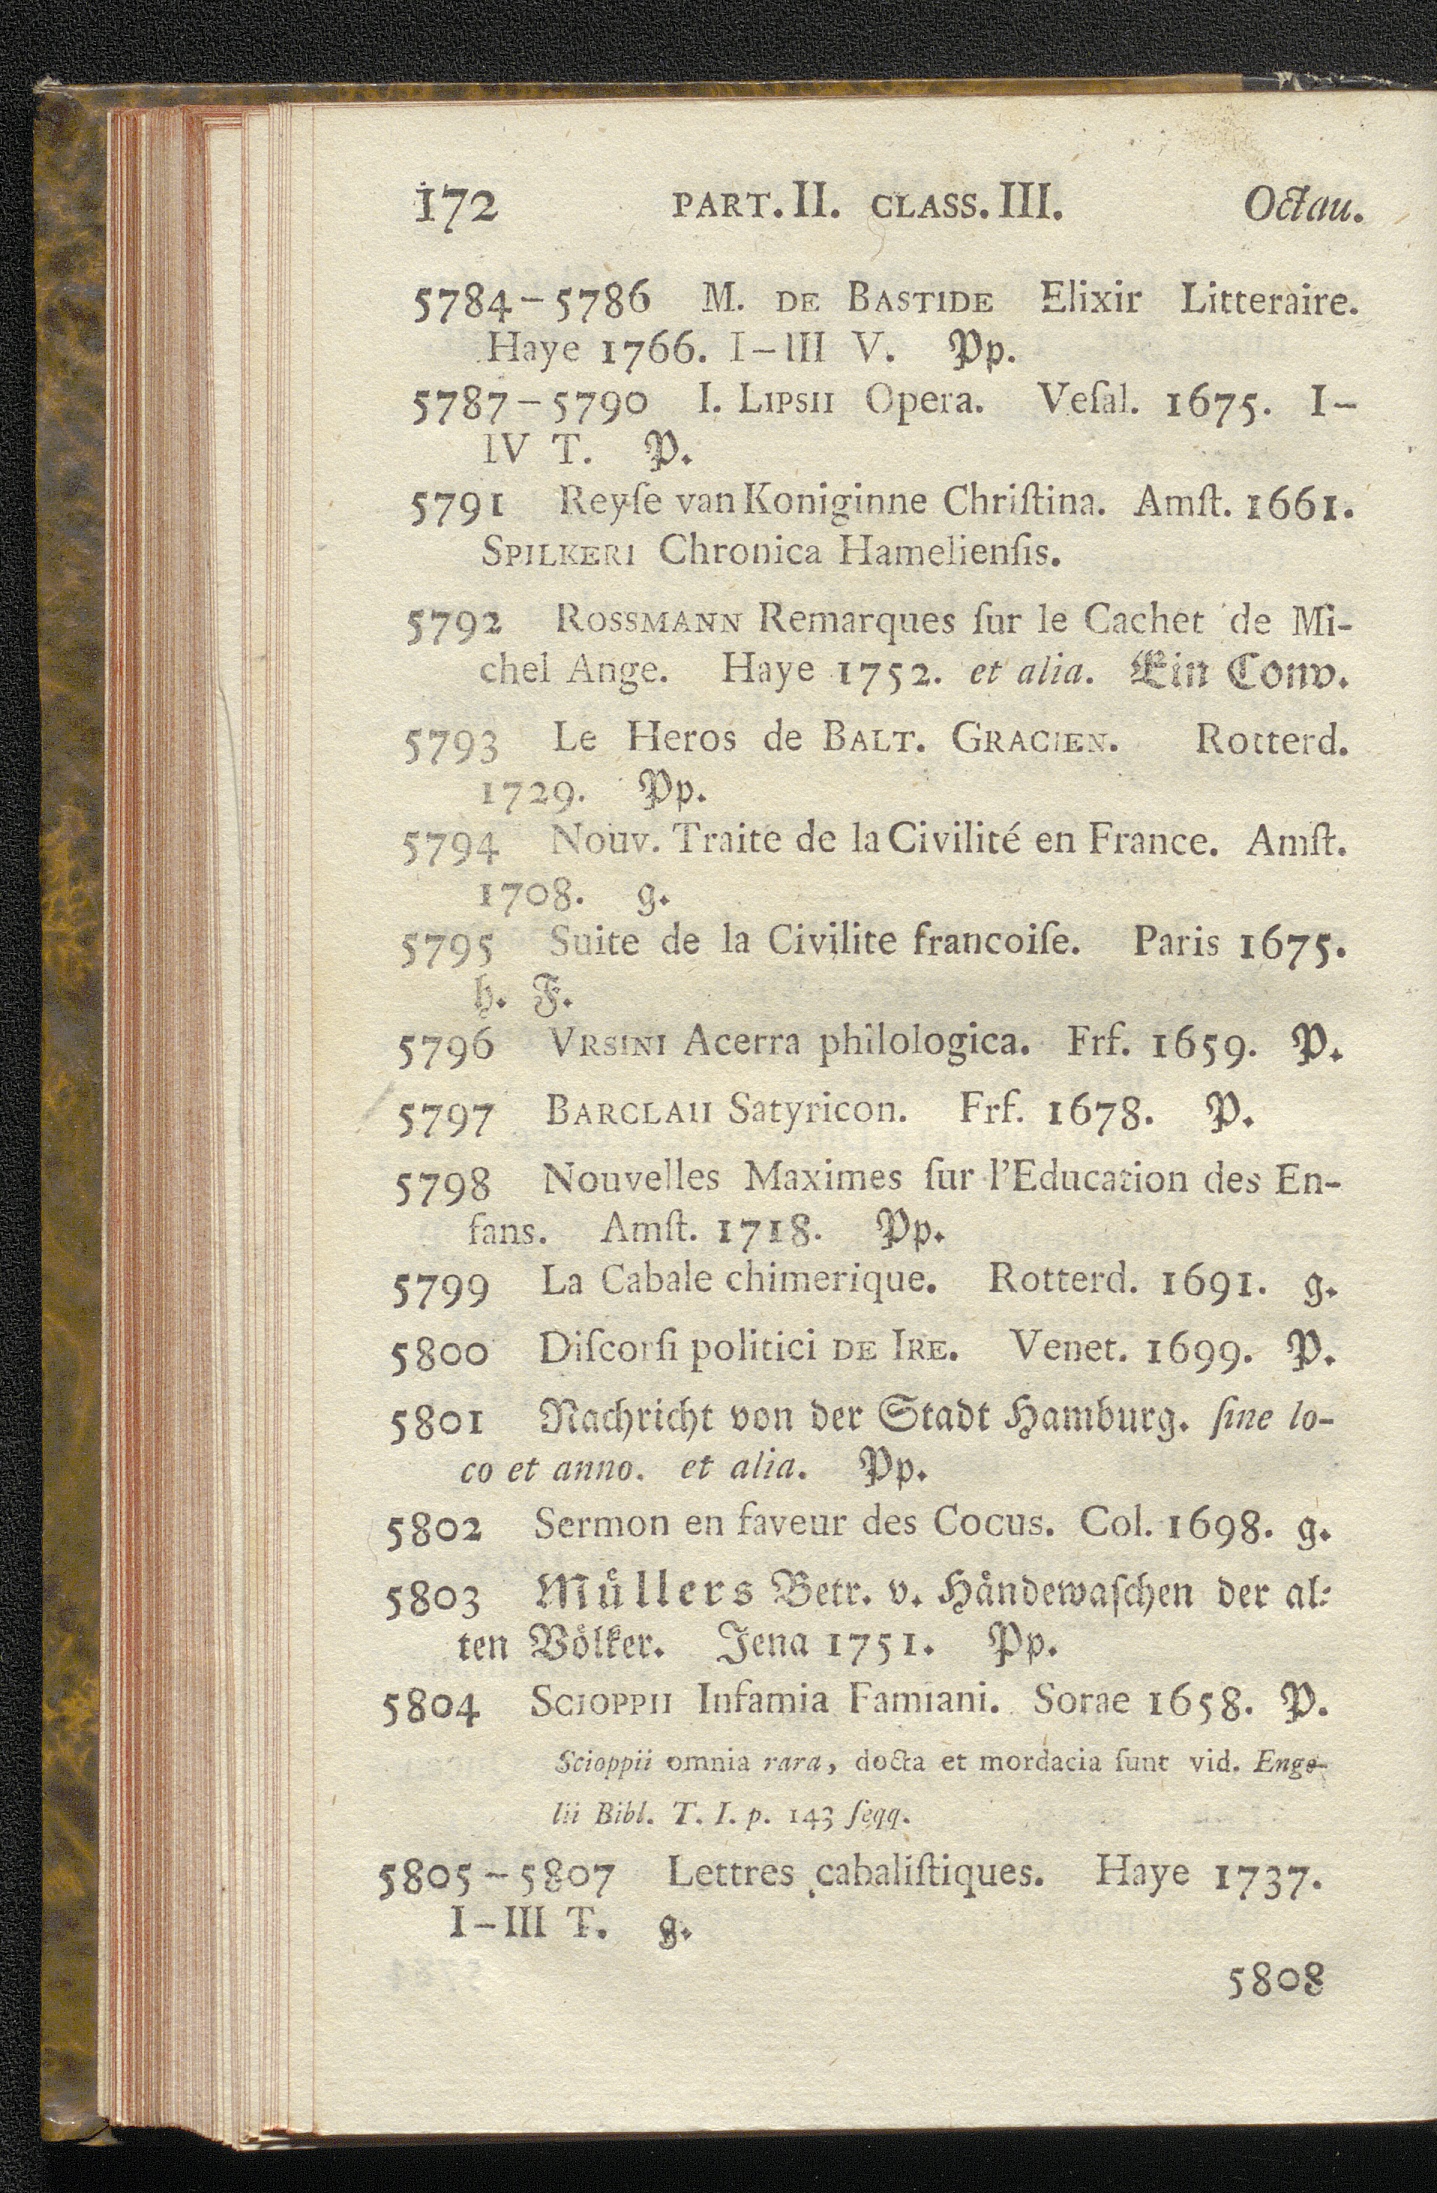 172 PART. II. CLASS. III. Octau.
5784–5786 M. DE BASTIDE Elixir Litteraire.
Haye 1766. I–III V. Pp.
5787–5790 I. LIPSII Opera. Veſal. 1675. I–
IV T. P.
5791 Reyſe van Koniginne Chriſtina. Amſt. 1661.
SPILKERI Chronica Hamelienſis.
5792 ROSSMANN Remarques ſur le Cachet de Mi-
chel Ange. Haye 1752. et alia. Ein Conv.
5793 Le Heros de BALT. GRACIEN. Rotterd.
1729. Pp.
5794 Nouv. Traite de la Civilité en France. Amſt.
1708. g.
5795 Suite de la Civilite francoiſe. Paris 1675.
h. F.
5796 VRSINI Acerra philologica. Frf. 1659. P.
5797 BARCLAII Satyricon. Frf. 1678. P.
5798 Nouvelles Maximes ſur l'Education des En-
fans. Amſt. 1718. Pp.
5799 La Cabale chimerique. Rotterd. 1691. g.
5800 Diſcorſi politici DE IRE. Venet. 1699. P.
5801 Nachricht von der Stadt Hamburg. ſine lo-
co et anno. et alia. Pp.
5802 Sermon en faveur des Cocus. Col. 1698. g.
5803 Müllers Betr. v. Händewaſchen der al-
ten Völker. Jena 1751. Pp.
5804 SCIOPPII Infamia Famiani. Sorae 1658. P.
Scioppii omnia rara, docta et mordacia ſunt vid. Enge-
lii Bibl. T. I. p. 143 ſeqq.
5805–5807 Lettres cabaliſtiques. Haye 1737.
I–III T. g.
5808